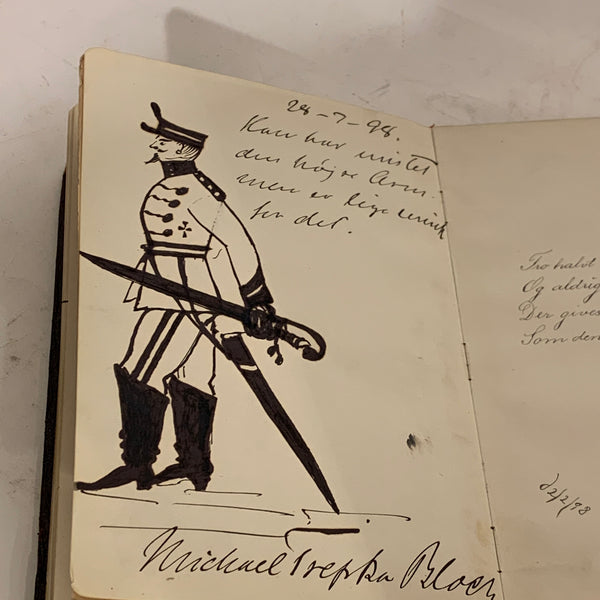 28-7-98.
Kan har mistet
den højre Arm.
men er lige
for det.
Michael Trepka Bloch
Tro halvt
Og aldrig
Der gives
Som den
d2/2/98